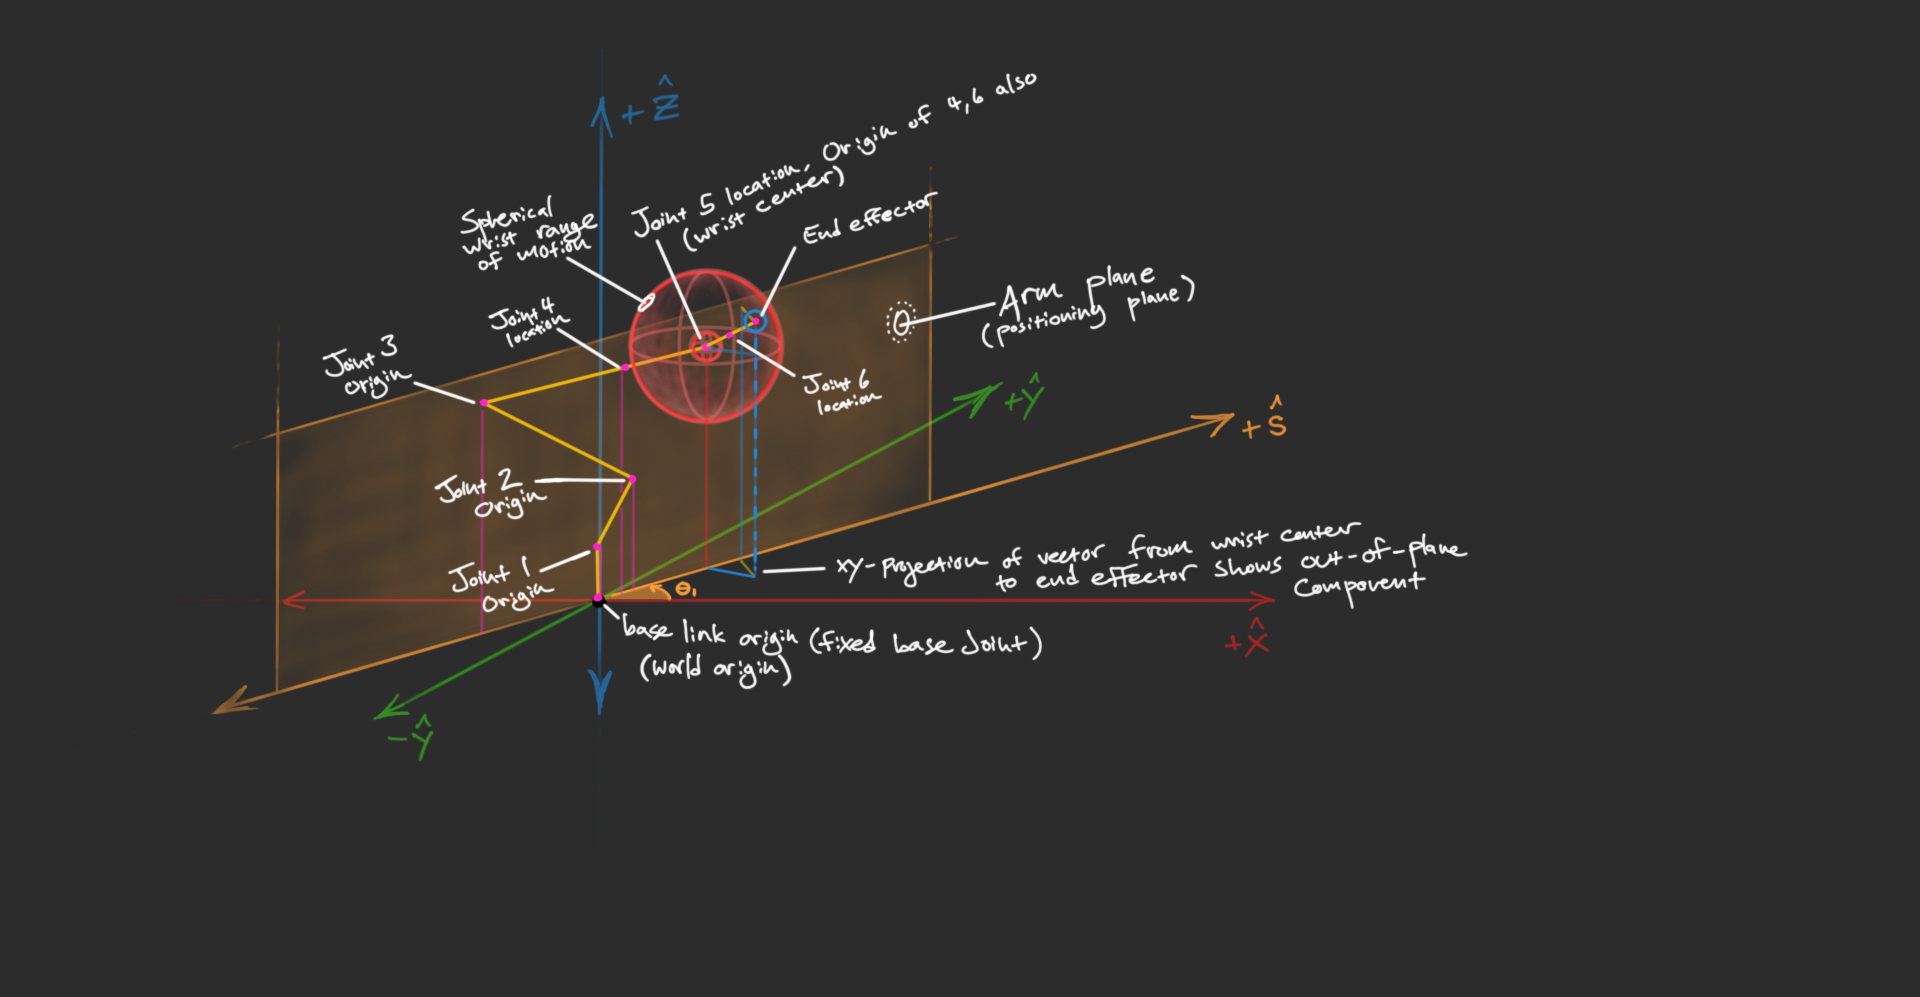 + Ẑ
Joint 5 location, Origin of 4,6 also
(wrist center)
Spherical
wrist range
of motion
End effector
Joint 4
location
Arm plane
(positioning plane)
Joint 3
origin
Joint 6
location
+Ŷ
+ Ŝ
Joint 2
Origin
xy-Projection of vector from wrist center
to end effector shows out-of-plane
component
Joint 1
Origin
θ₁
base link origin (fixed base Joint)
(world origin)
+X̂
-Ŷ